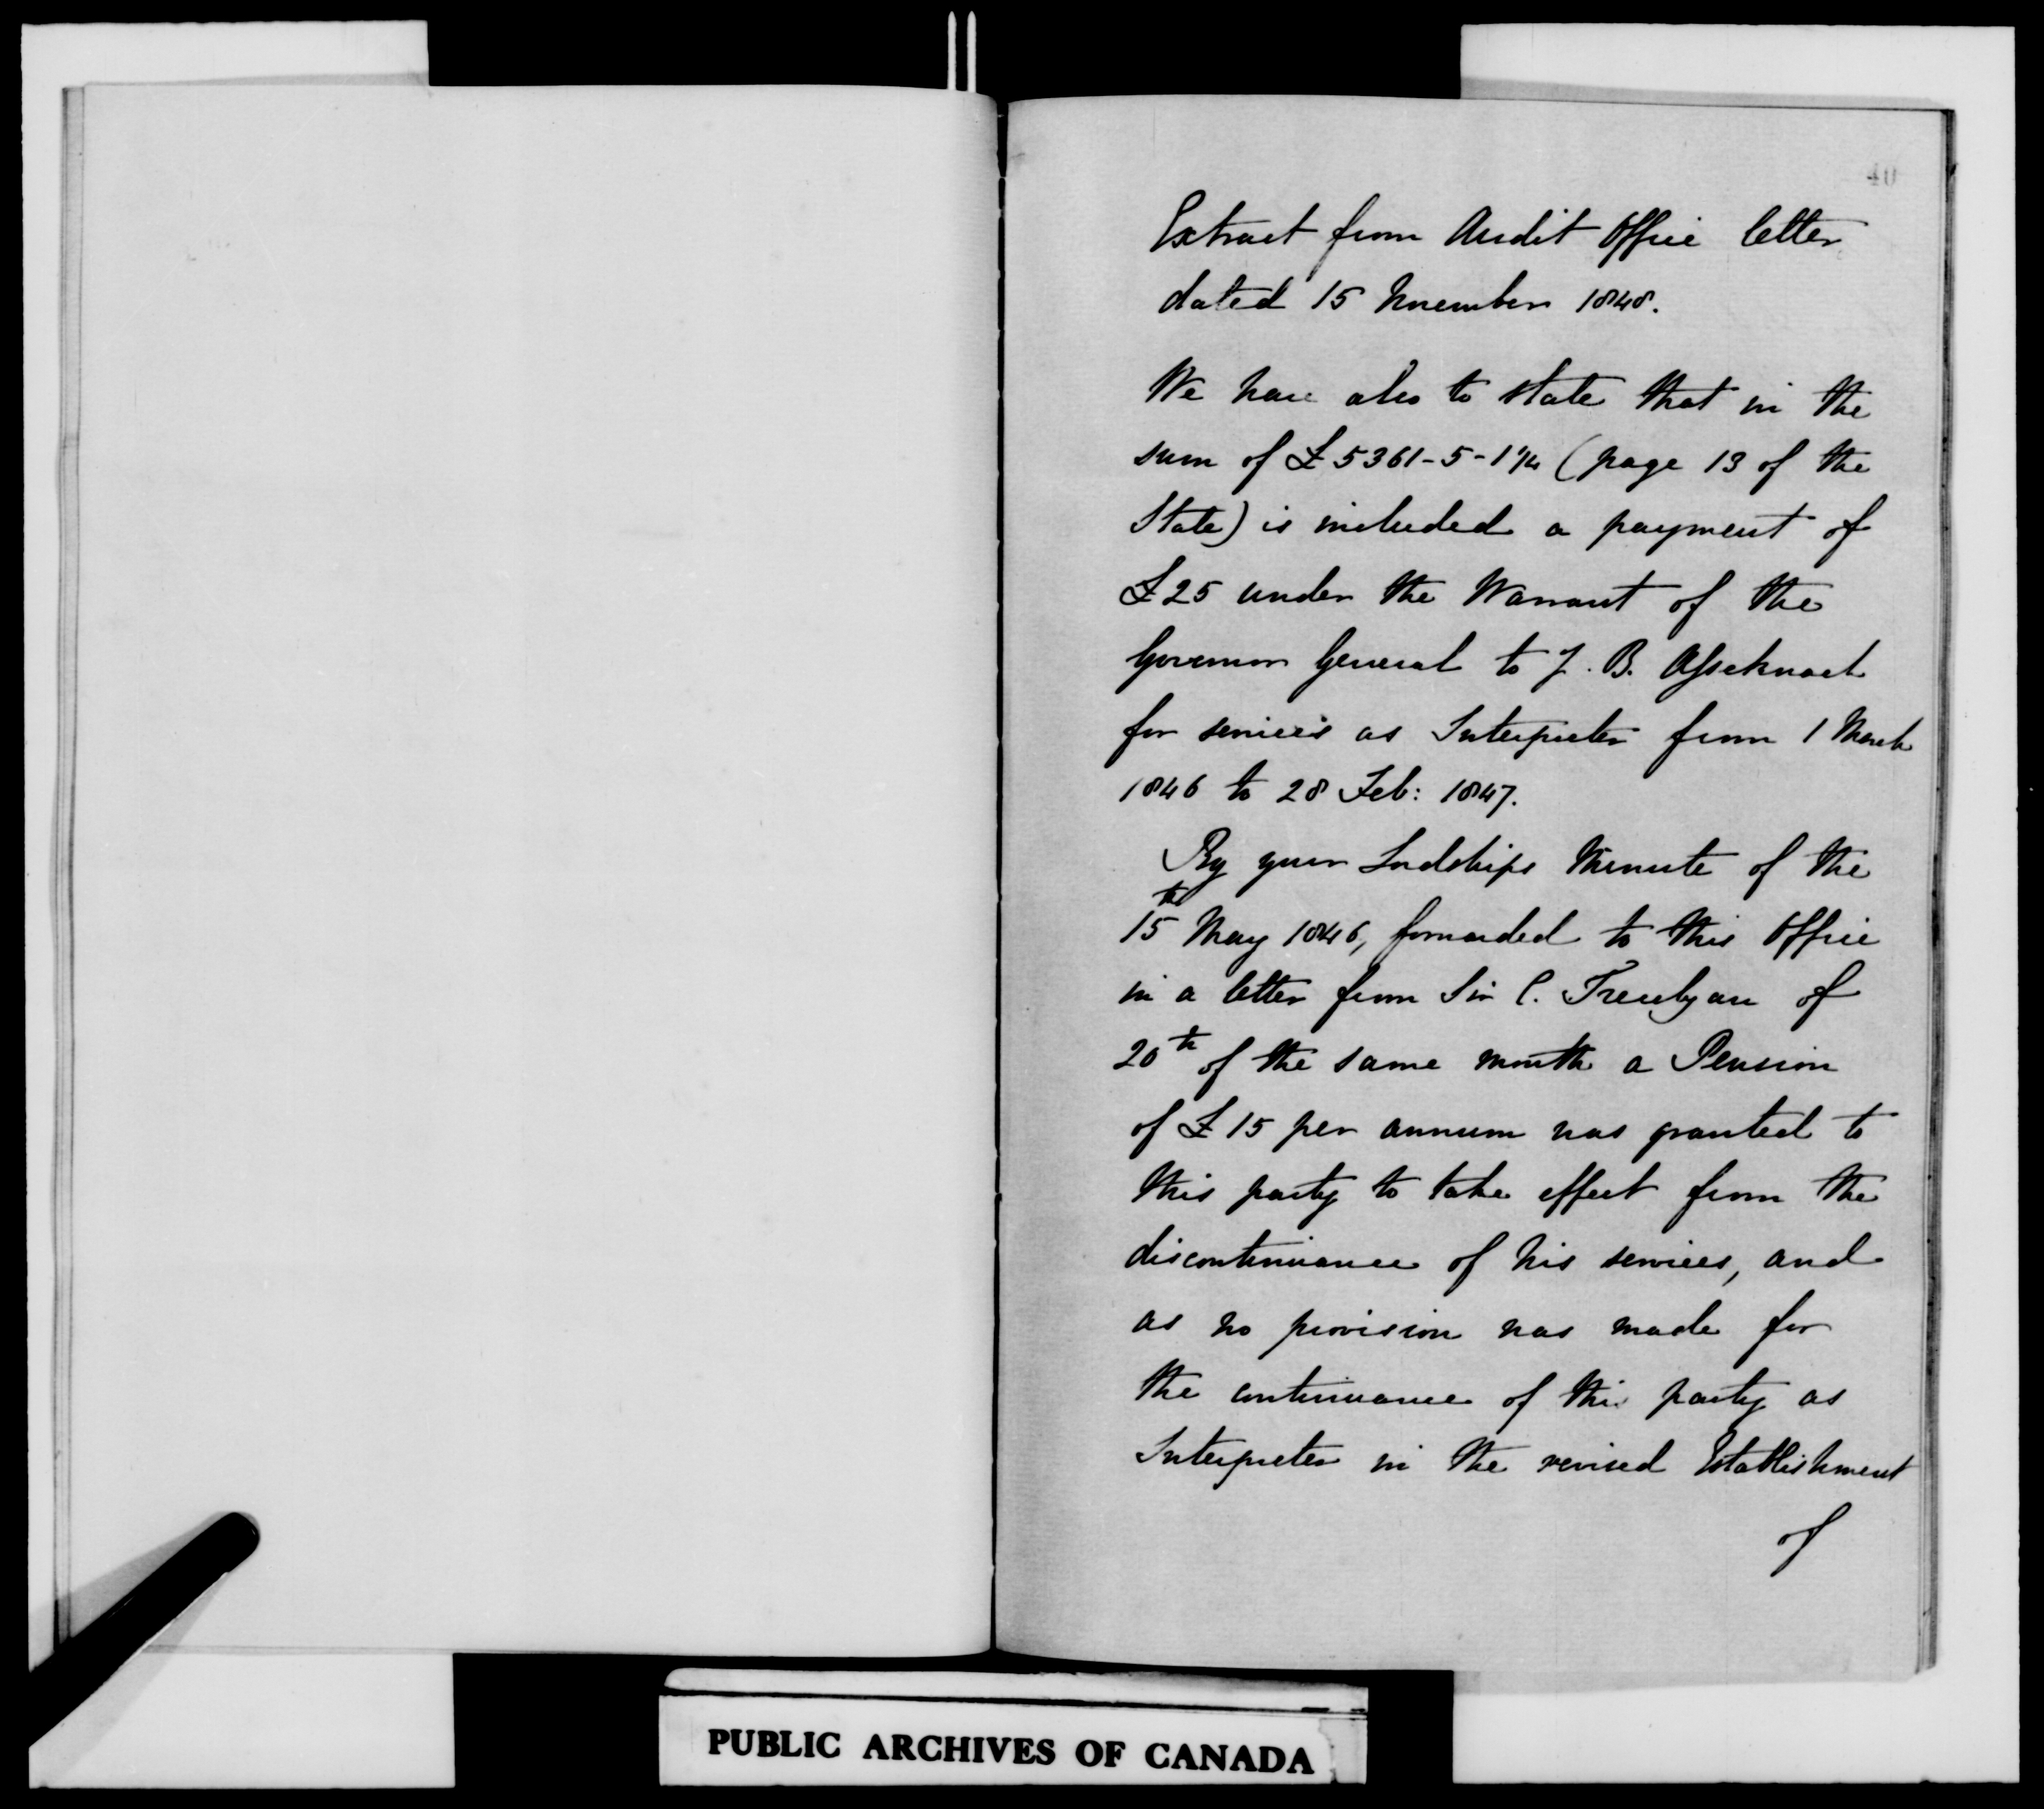 40
Extract from Audit Office letter
dated 15 November 1848.
We have also to state that in the
sum of £5361-5-1 1/4 (page 13 of the
State) is included a payment of
£25 under the Warrant of the
Governor General to J. B.
for services as Interpreter from 1 March
1846 to 28 Feb: 1847.
By your Lordships Minute of the
15th May 1846, forwarded to this Office
in a letter from Sir C. Trevelyan of
20th of the same month a Pension
of £15 per annum was granted to
this party to take effect from the
discontinuance of his services, and
as no provision was made for
the continuance of this party as
Interpreter in the revised Establishment
of
PUBLIC ARCHIVES OF CANADA